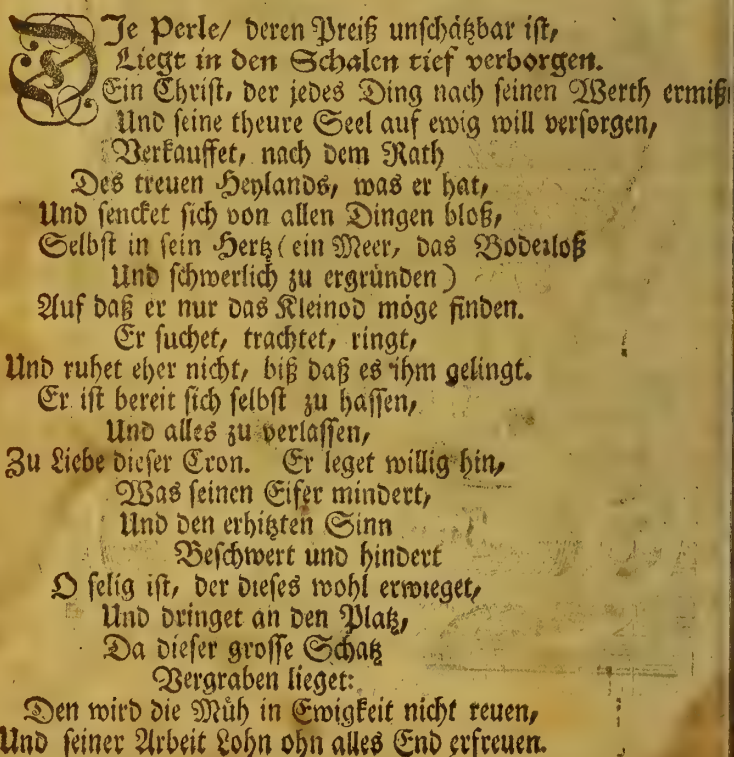 DIe Perle/ deren Preiß unschätzbar ist,
Liegt in den Schalen tief verborgen.
Ein Christ, der jedes Ding nach seinen Werth ermißt
Und seine theure Seel auf ewig will versorgen,
Verkauffet, nach dem Rath
Des treuen Heylands, was er hat,
Und sencket sich von allen Dingen bloß,
Selbst in sein Hertz (ein Meer, das Bodenloß
Und schwerlich zu ergründen)
Auf daß er nur das Kleinod möge finden.
Er suchet, trachtet, ringt,
Und ruhet eher nicht, biß daß es ihm gelingt.
Er ist bereit sich selbst zu hassen,
Und alles zu verlassen,
Zu Liebe dieser Cron. Er leget willig hin,
Was seinen Eifer mindert,
Und den erhitzten Sinn
Beschwert und hindert
O selig ist, der dieses wohl erwieget,
Und dringet an den Platz,
Da dieser grosse Schatz
Vergraben lieget:
Den wird die Müh in Ewigkeit nicht reuen,
Und seiner Arbeit Lohn ohn alles End erfreuen.